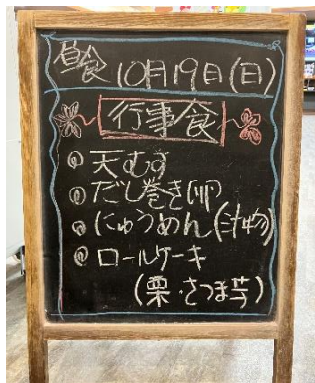 昼食 10月19日(日)
行事食
天むす
だし巻き(卵)
にゅうめん(汁物)
ロールケーキ
(栗・さつま芋)